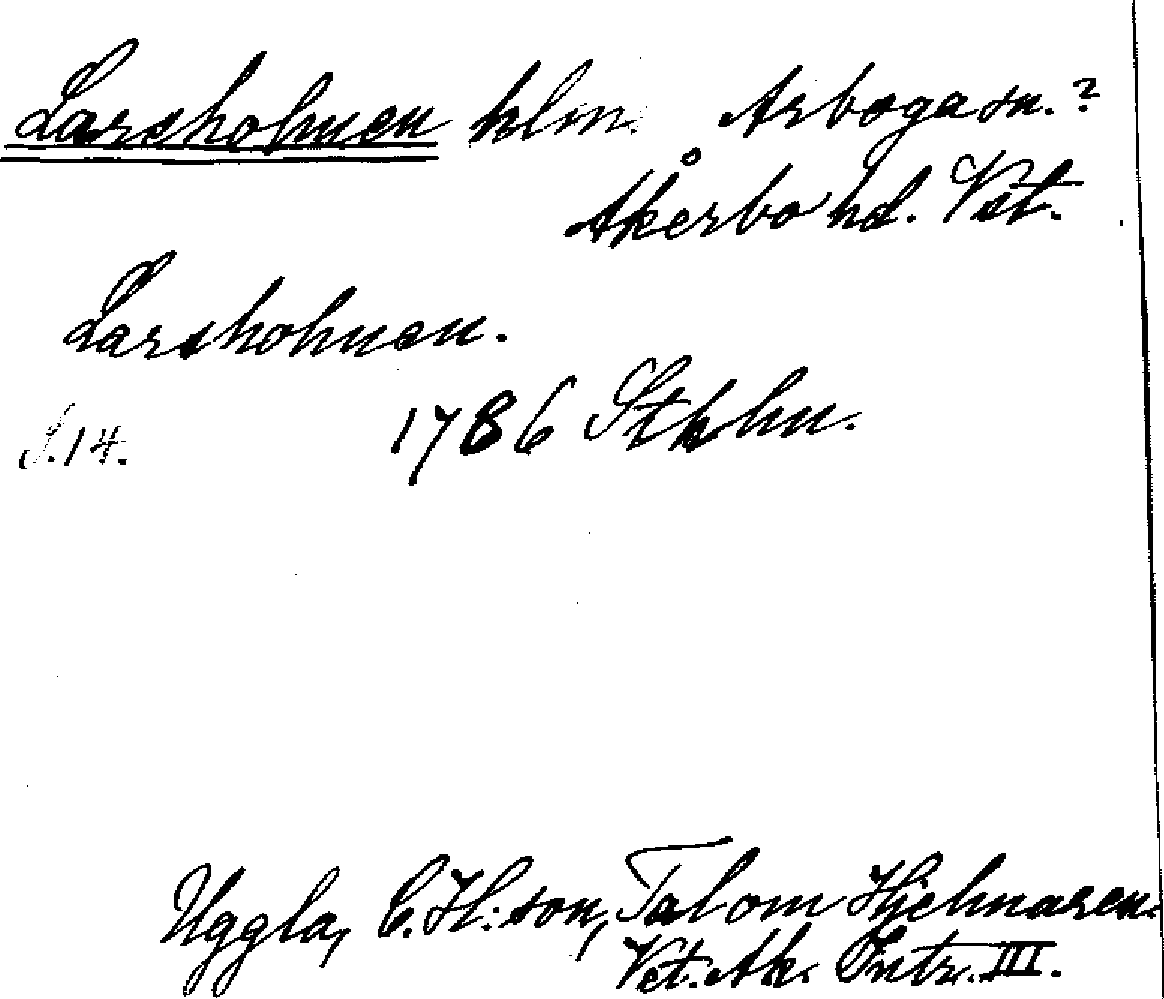 Larsholmen hlm. Arboga sn.?
Åkerbo hd. Vst.
Larsholmen.
S.14. 1786 Stkhlm.
Uggla, C. H:son, Tal om Hjelmaren.
Vet. Ak. Intr. III.